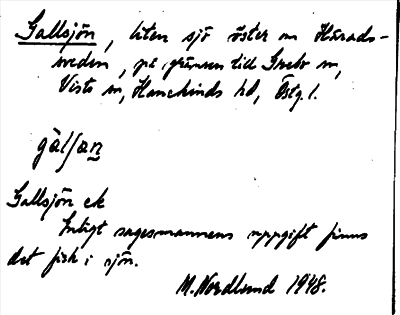 Gallsjön, liten sjö öster om Härads-
sveden, på gränsen till Grebo sn,
Vists sn, Hanekinds hd, Östg. l.
gàlʃən
Gallsjön ek
Enligt sagesmannens uppgift finns
det fisk i sjön.
M. Nordlund 1948.